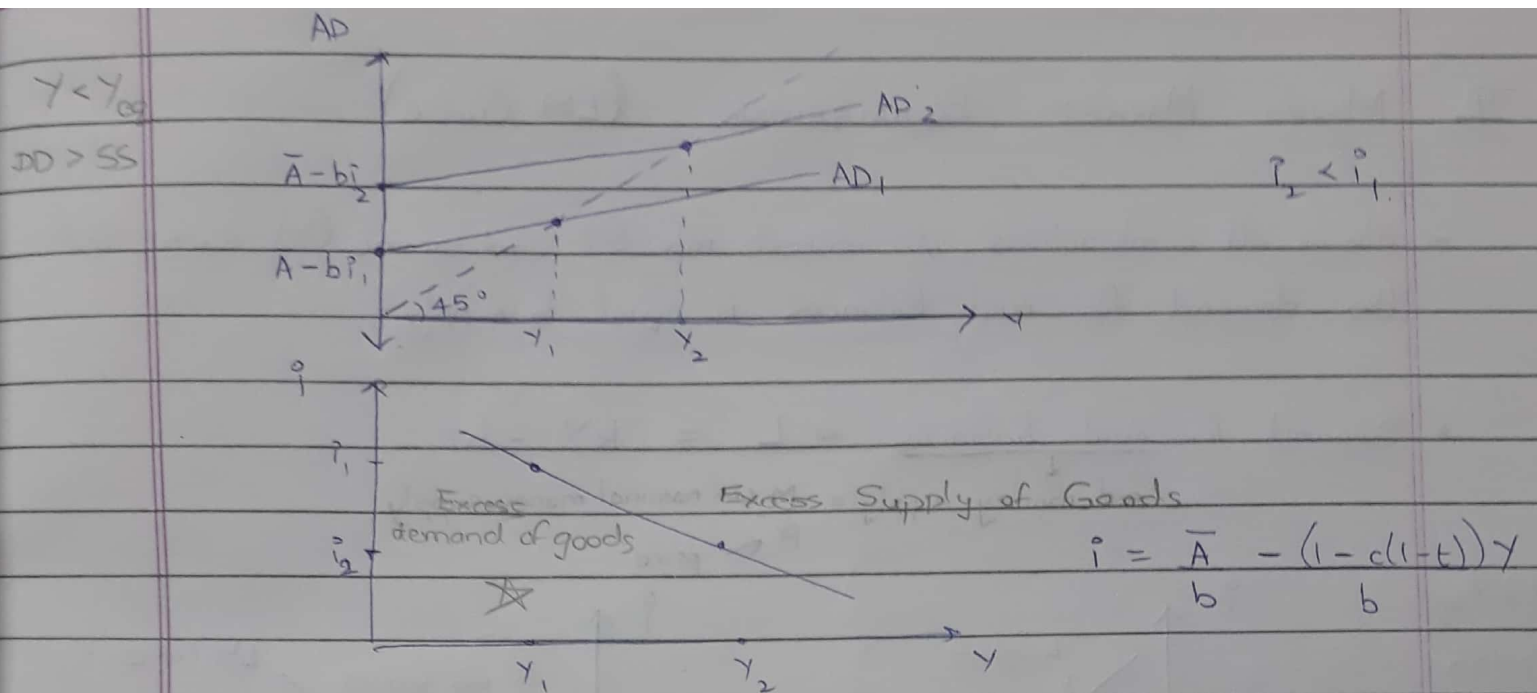 AD
Y < Yeq
DD > SS
AD2
Ā - bi2
AD1
i2 < i1.
A - bi1
45°
Y
Y1
Y2
i
i1
Excess
demand of goods
Excess Supply of Goods
i2
i = Ā/b - (1 - c(1-t))Y/b
Y1
Y2
Y